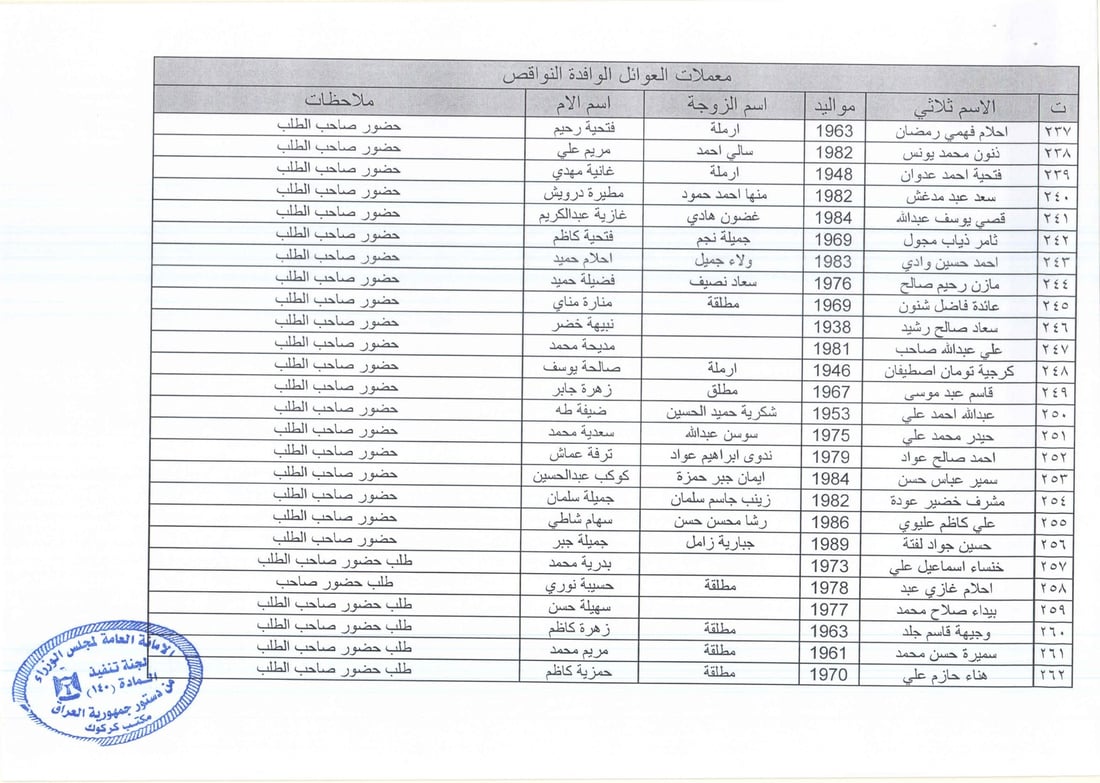 معملات العوائل الوافدة النواقص
ت الاسم ثلاثي مواليد اسم الزوجة اسم الام ملاحظات
٢٣٧ احلام فهمي رمضان 1963 ارملة فتحية رحيم حضور صاحب الطلب
٢٣٨ ذنون محمد يونس 1982 سالي احمد مريم علي حضور صاحب الطلب
٢٣٩ فتحية احمد عدوان 1948 ارملة غانية مهدي حضور صاحب الطلب
٢٤٠ سعد عبد مدغش 1982 منها احمد حمود مطيرة درويش حضور صاحب الطلب
٢٤١ قصي يوسف عبدالله 1984 غضون هادي غازية عبدالكريم حضور صاحب الطلب
٢٤٢ ثامر ذياب مجول 1969 جميلة نجم فتحية كاظم حضور صاحب الطلب
٢٤٣ احمد حسين وادي 1983 ولاء جميل احلام حميد حضور صاحب الطلب
٢٤٤ مازن رحيم صالح 1976 سعاد نصيف فضيلة حميد حضور صاحب الطلب
٢٤٥ عائدة فاضل شنون 1969 مطلقة منارة مناي حضور صاحب الطلب
٢٤٦ سعاد صالح رشيد 1938 نبيهة خضر حضور صاحب الطلب
٢٤٧ علي عبدالله صاحب 1981 مديحة محمد حضور صاحب الطلب
٢٤٨ كرجية تومان اصطيفان 1946 ارملة صالحة يوسف حضور صاحب الطلب
٢٤٩ قاسم عبد موسى 1967 مطلق زهرة جابر حضور صاحب الطلب
٢٥٠ عبدالله احمد علي 1953 شكرية حميد الحسين ضيفة طه حضور صاحب الطلب
٢٥١ حيدر محمد علي 1975 سوسن عبدالله سعدية محمد حضور صاحب الطلب
٢٥٢ احمد صالح عواد 1979 ندوى ابراهيم عواد ترفة عماش حضور صاحب الطلب
٢٥٣ سمير عباس حسن 1984 ايمان جبر حمزة كوكب عبدالحسين حضور صاحب الطلب
٢٥٤ مشرف خضير عودة 1982 زينب جاسم سلمان جميلة سلمان حضور صاحب الطلب
٢٥٥ علي كاظم عليوي 1986 رشا محسن حسن سهام شاطي حضور صاحب الطلب
٢٥٦ حسين جواد لفتة 1989 جبارية زامل جميلة جبر حضور صاحب الطلب
٢٥٧ خنساء اسماعيل علي 1973 بدرية محمد طلب حضور صاحب الطلب
٢٥٨ احلام غازي عبد 1978 مطلقة حسيبة نوري طلب حضور صاحب
٢٥٩ بيداء صلاح محمد 1977 سهيلة حسن طلب حضور صاحب الطلب
٢٦٠ وجيهة قاسم جلد 1963 مطلقة زهرة كاظم طلب حضور صاحب الطلب
٢٦١ سميرة حسن محمد 1961 مطلقة مريم محمد طلب حضور صاحب الطلب
٢٦٢ هناء حازم علي 1970 مطلقة حمزية كاظم طلب حضور صاحب الطلب
الامانة العامة لمجلس الوزراء
لجنة تنفيذ
المادة (١٤٠)
من دستور جمهورية العراق
مكتب كركوك